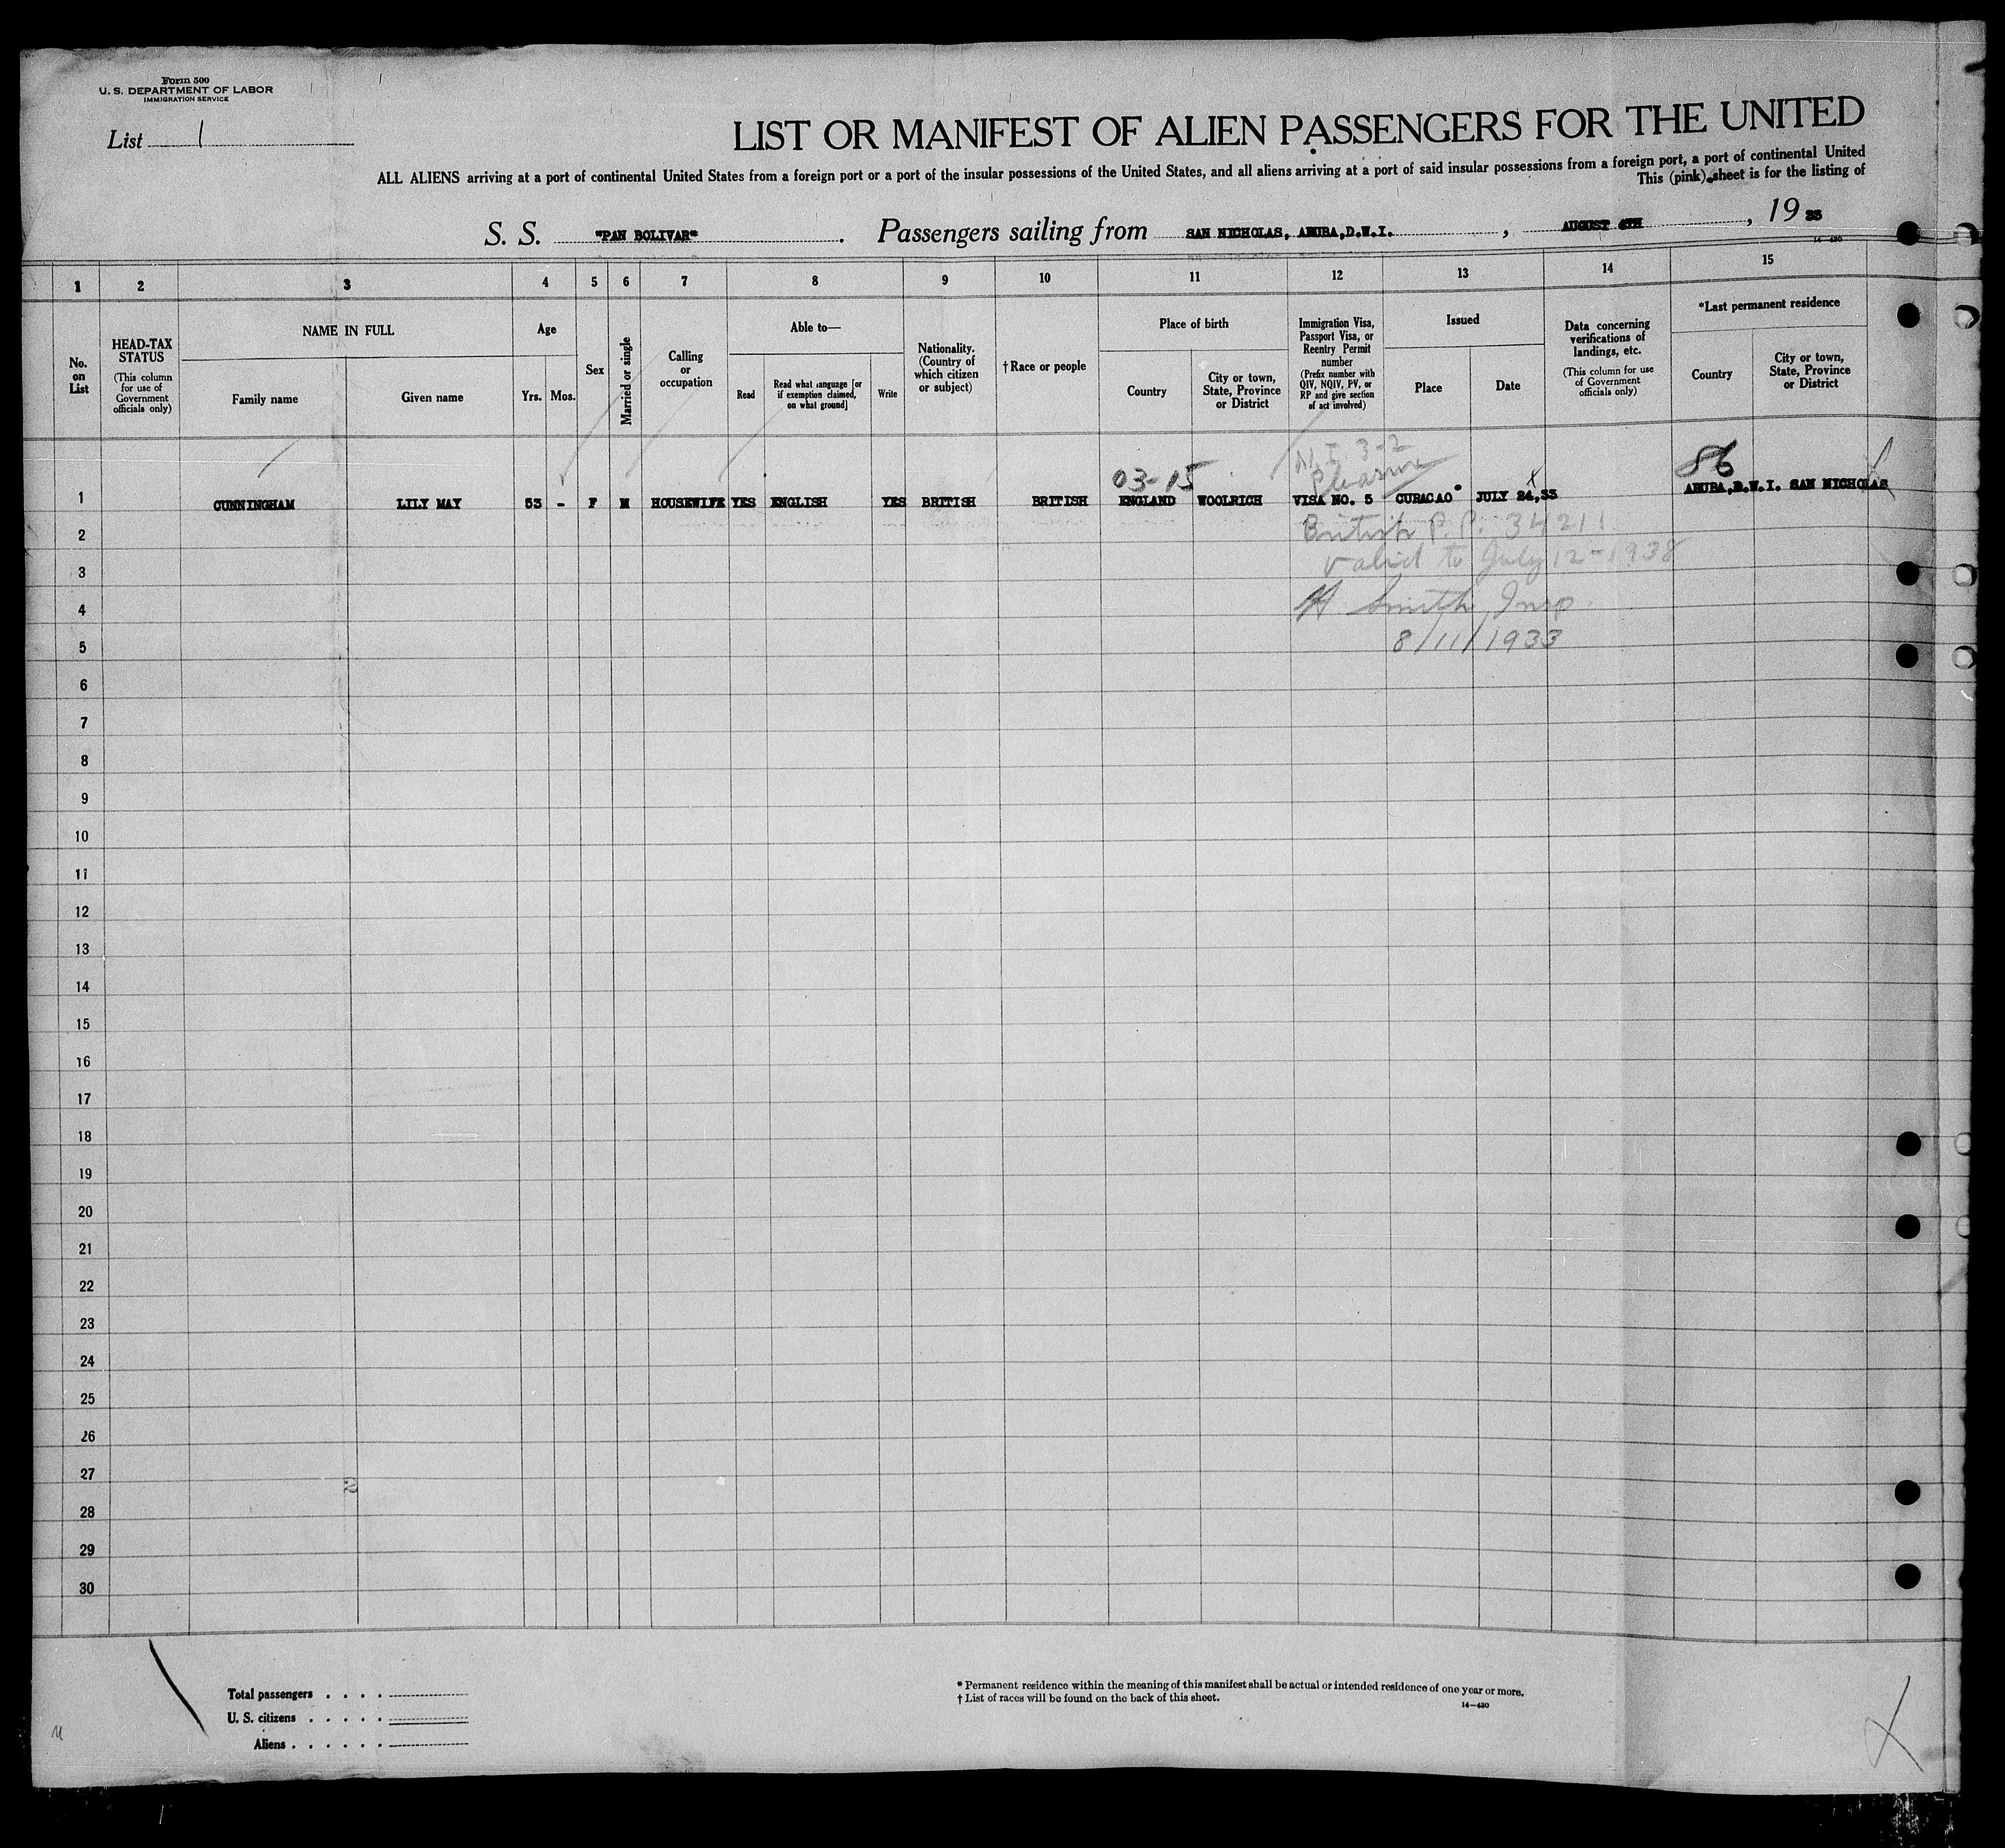 Form 500
U. S. DEPARTMENT OF LABOR
IMMIGRATION SERVICE
List 1
LIST OR MANIFEST OF ALIEN PASSENGERS FOR THE UNITED
ALL ALIENS arriving at a port of continental United States from a foreign port or a port of the insular possessions of the United States, and all aliens arriving at a port of said insular possessions from a foreign port, a port of continental United
This (pink) sheet is for the listing of
S. S. "PAN BOLIVAR" . Passengers sailing from SAN NICHOLAS, ARUBA,D.W.I. , AUGUST , 19 33
14—430
1 2 3 4 5 6 7 8 9 10 11 12 13 14 15
No. on List
HEAD-TAX STATUS
(This column for use of Government officials only)
NAME IN FULL
Family name
Given name
Age
Yrs.
Mos.
Sex
Married or single
Calling or occupation
Able to—
Read
Read what language [or if exemption claimed, on what ground]
Write
Nationality. (Country of which citizen or subject)
†Race or people
Place of birth
Country
City or town, State, Province or District
Immigration Visa, Passport Visa, or Reentry Permit number
(Prefix number with QIV, NQIV, PV, or RP and give section of act involved)
Issued
Place
Date
Data concerning verifications of landings, etc.
(This column for use of Government officials only)
*Last permanent residence
Country
City or town, State, Province or District
3-2
03-15
Pleasure
86
1 CUNNINGHAM LILY MAY 53 - F M HOUSEWIFE YES ENGLISH YES BRITISH BRITISH ENGLAND WOOLRICH VISA NO. 5 CURACAO JULY 24,33 ARUBA,D.W.I. SAN NICHOLAS
2
British P.P.
3
valid to July 12-1938
4
Smith, Insp.
5
8/11/1933
6
7
8
9
10
11
12
13
14
15
16
17
18
19
20
21
22
23
24
25
26
27
28
29
30
Total passengers
U. S. citizens
Aliens
* Permanent residence within the meaning of this manifest shall be actual or intended residence of one year or more.
† List of races will be found on the back of this sheet.
14—430